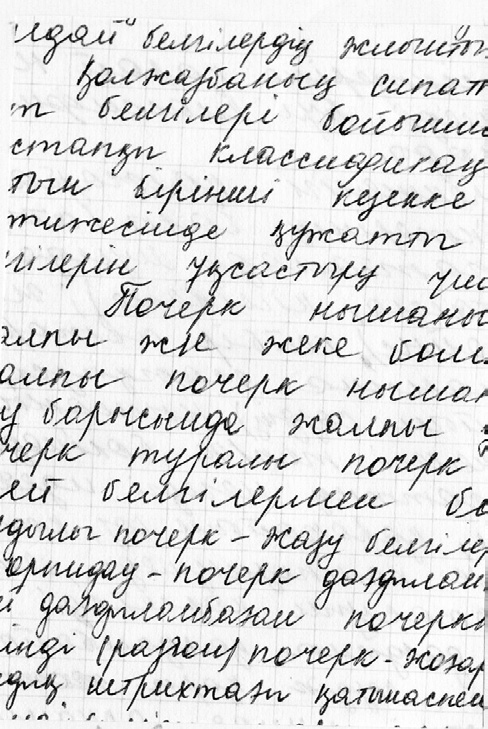 лдай белгілердің жлыптың
Қолжазбаның сипатт
т белгілері бойынша
стапқы классификац
тың бірінші кезекке
тижесінде құжатты
гілерін ұқсастыру үшін
Почерк нышаны
алпы же жеке бол
алпы почерк нышан
у барысында жалпы
черк туралы почерк
ей белгілермен бо
дылы почерк - жазу белгілер
орындау - почерк дағдылан
й дағдыланбаған почерк
інді (разгон) почерк - жоғар
дің штрихтағы қатынаспен